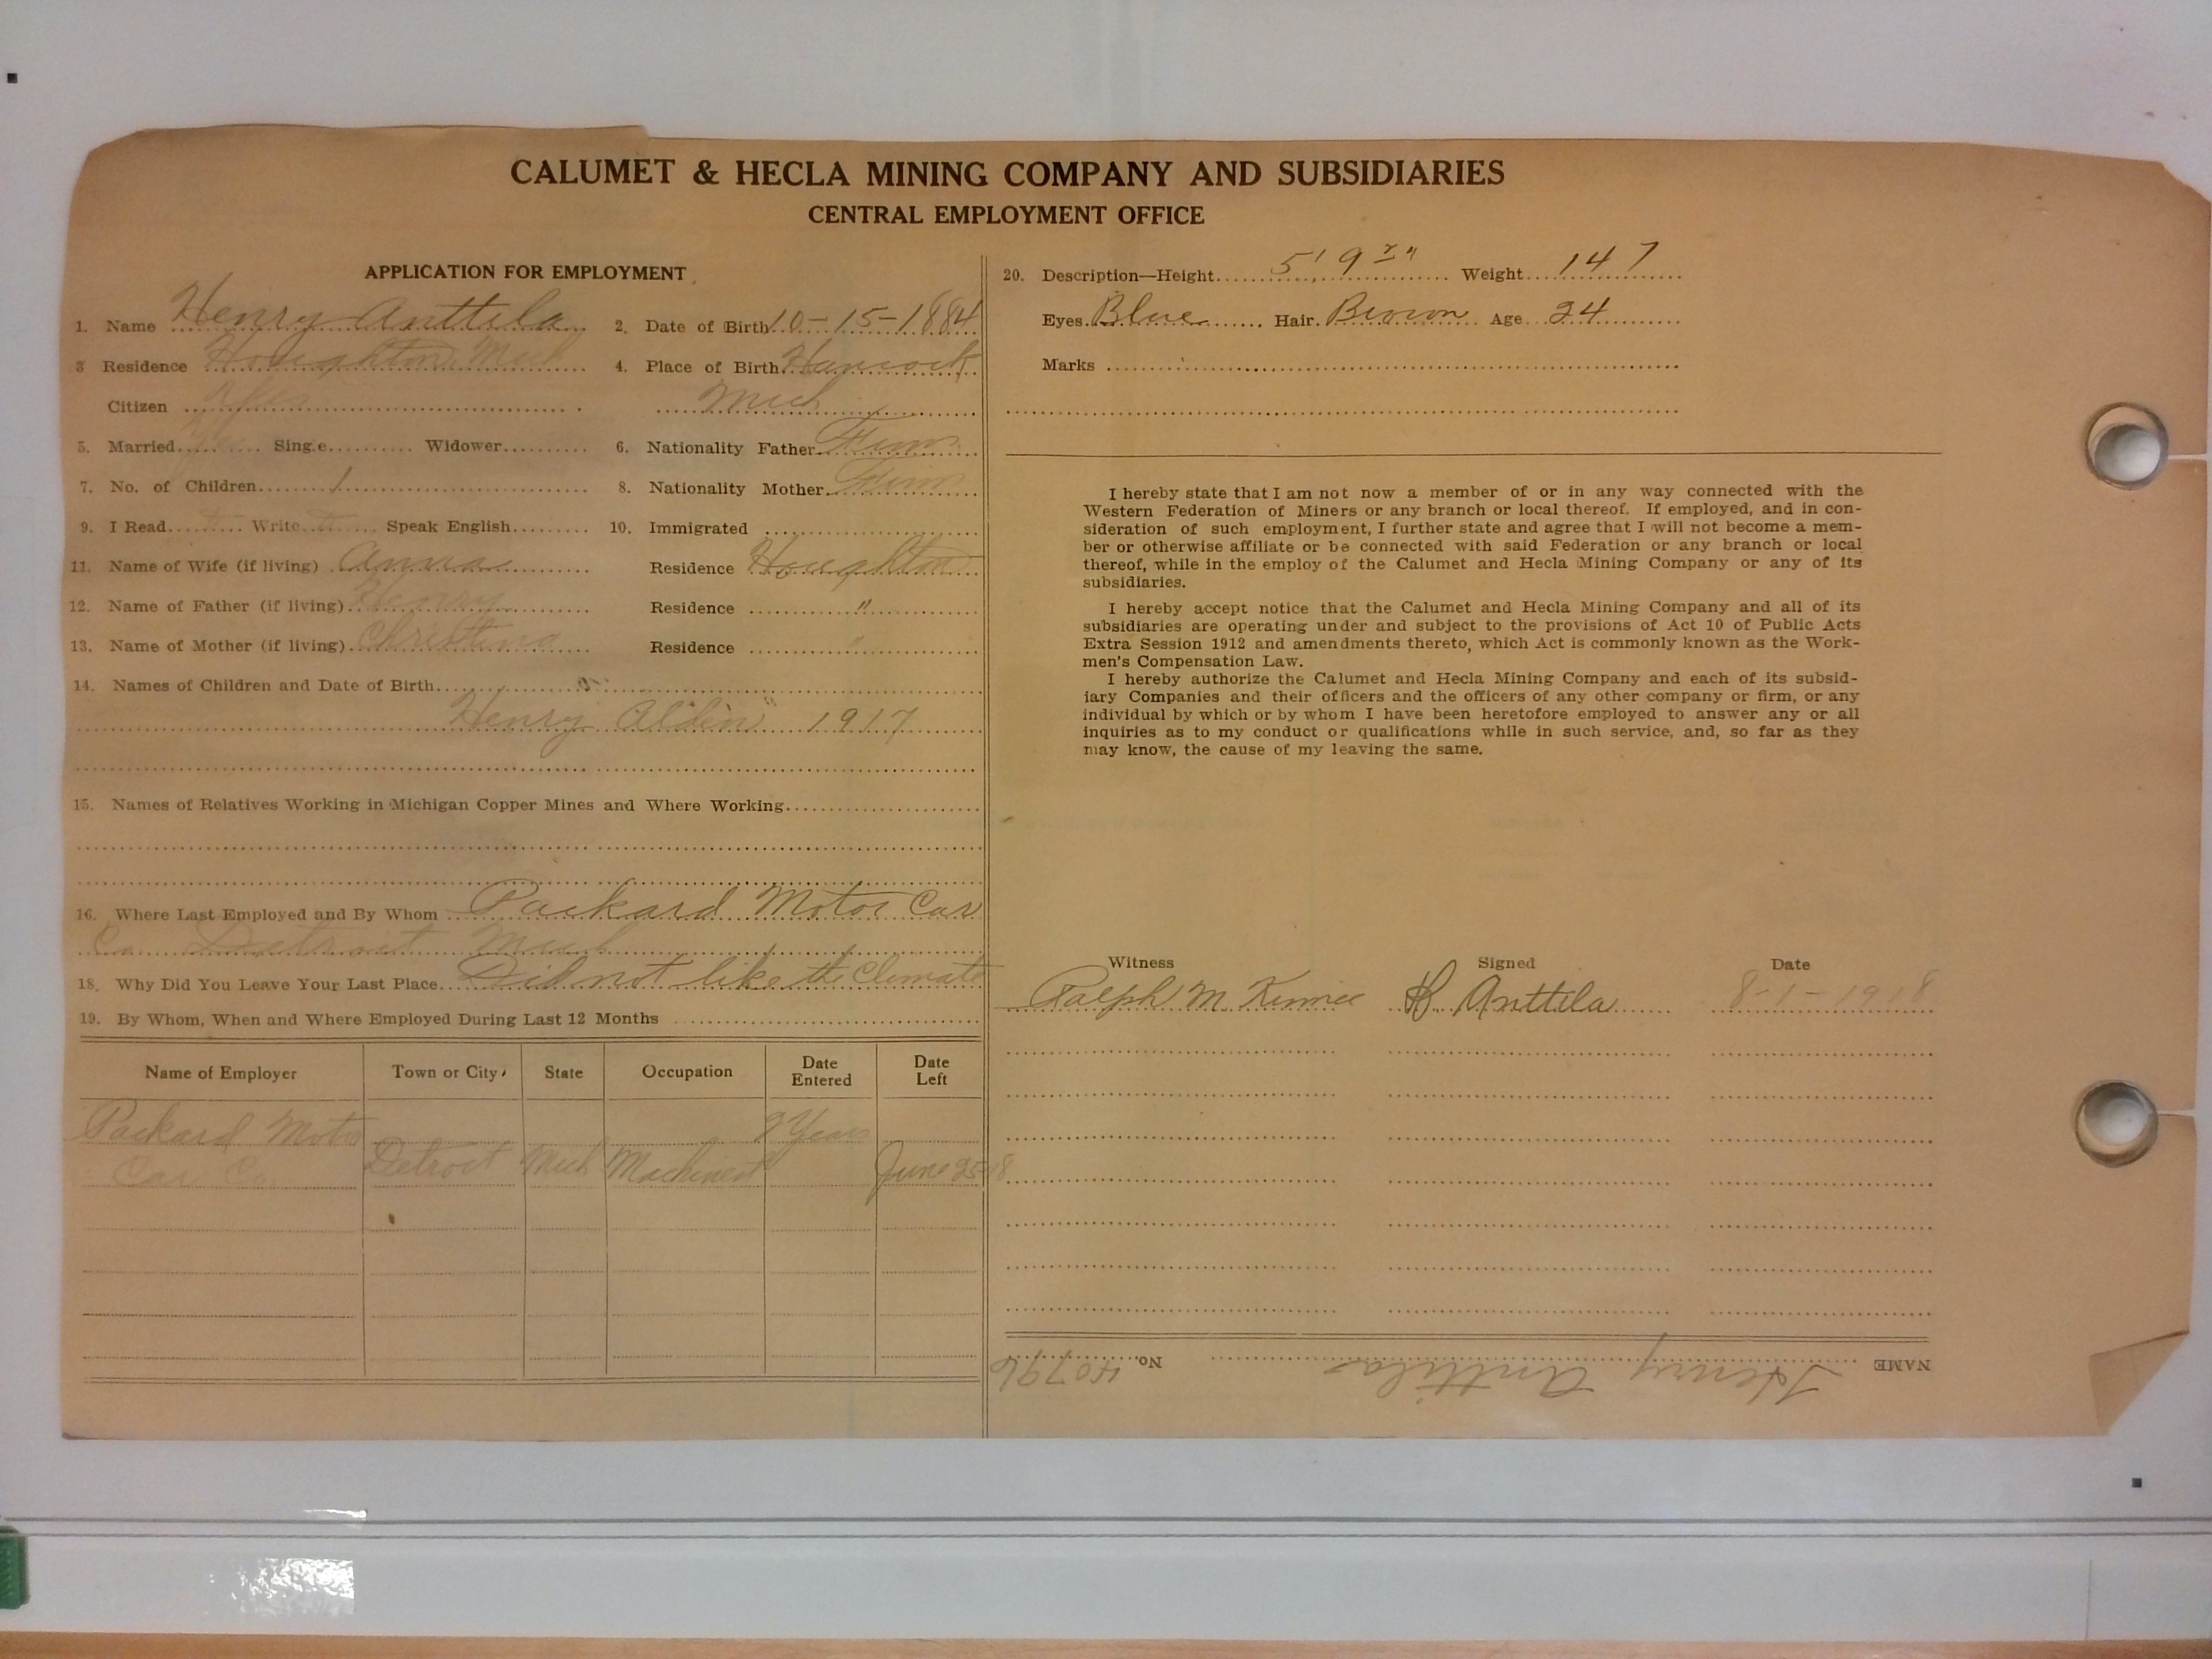 CALUMET & HECLA MINING COMPANY AND SUBSIDIARIES
CENTRAL EMPLOYMENT OFFICE
APPLICATION FOR EMPLOYMENT
1. Name Henry Anttila
2. Date of Birth 10-15-1884
3 Residence Houghton Mich
4. Place of Birth Hancock
Citizen Yes
Mich
5. Married Yes Sing.e Widower
6. Nationality Father Finn
7. No. of Children 1
8. Nationality Mother Finn
9. I Read Write Speak English
10. Immigrated
11. Name of Wife (if living) Anna
Residence Houghton
12. Name of Father (if living) Henry
Residence "
13. Name of Mother (if living) Christina
Residence "
14. Names of Children and Date of Birth
Henry Alden 1917
15. Names of Relatives Working in Michigan Copper Mines and Where Working
16. Where Last Employed and By Whom Packard Motor Car
Co. Detroit Mich
18. Why Did You Leave Your Last Place Did not like the Climate
19. By Whom, When and Where Employed During Last 12 Months
Name of Employer Town or City State Occupation Date Entered Date Left
Packard Motor 2 Years
Car Co. Detroit Mich Machinest June 25 18
20. Description—Height 5' 9 " Weight 147
Eyes Blue Hair Brown Age 34
Marks
I hereby state that I am not now a member of or in any way connected with the
Western Federation of Miners or any branch or local thereof. If employed, and in con-
sideration of such employment, I further state and agree that I will not become a mem-
ber or otherwise affiliate or be connected with said Federation or any branch or local
thereof, while in the employ of the Calumet and Hecla Mining Company or any of its
subsidiaries.
I hereby accept notice that the Calumet and Hecla Mining Company and all of its
subsidiaries are operating under and subject to the provisions of Act 10 of Public Acts
Extra Session 1912 and amendments thereto, which Act is commonly known as the Work-
men's Compensation Law.
I hereby authorize the Calumet and Hecla Mining Company and each of its subsid-
iary Companies and their officers and the officers of any other company or firm, or any
individual by which or by whom I have been heretofore employed to answer any or all
inquiries as to my conduct or qualifications while in such service, and, so far as they
may know, the cause of my leaving the same.
Witness Signed Date
Ralph M. H. Anttila 8-1-1918
NAME Henry Anttila No. 40796